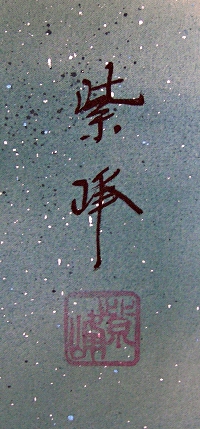 紫峰
紫峰